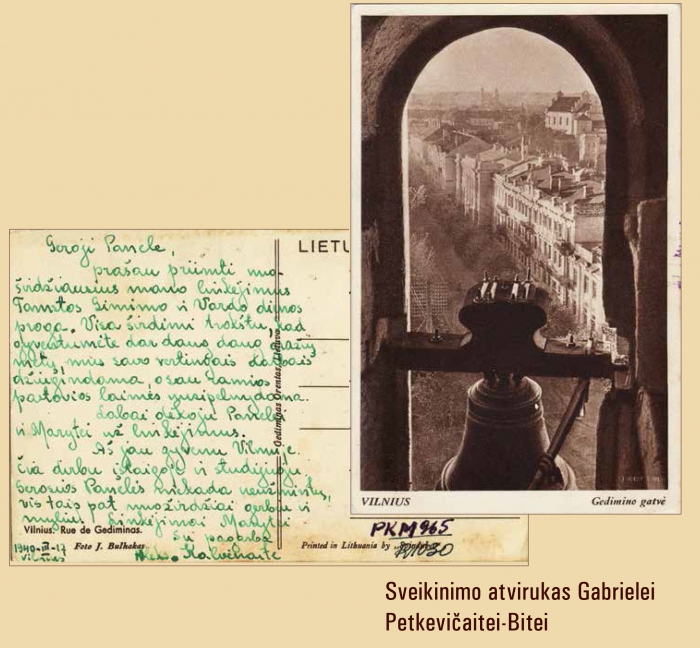 Geroji Panele,
prašau priimti nuo-
širdžiausius mano linkėjimus
Tamstos Gimimo ir Vardo dienos
proga. Visa širdimi trokštu, kad
gyventumėte dar daug daug gražių
metų, mus savo vertingais darbais
džiugindama, o sau ramios
pastovios laimės
Labai dėkoju Panelei
ir Marytei už linkėjimus.
Aš jau gyvenu Vilniuje.
Čia dirbu įstaigoj ir studijuoju.
Gerosios Panelės niekada neužmiršiu,
vis taip pat nuoširdžiai gerbiu ir
myliu. Linkėjimai Marytei
Su pagarba
Kalvėnaitė
1940-III-17
Vilnius
Vilnius. Rue de Gediminas.
Foto J. Bulhakas
LIETU
Gediminas Orentas,
PKM965
Printed in Lithuania by
VILNIUS
Gedimino gatvė
Sveikinimo atvirukas Gabrielei
Petkevičaitei-Bitei